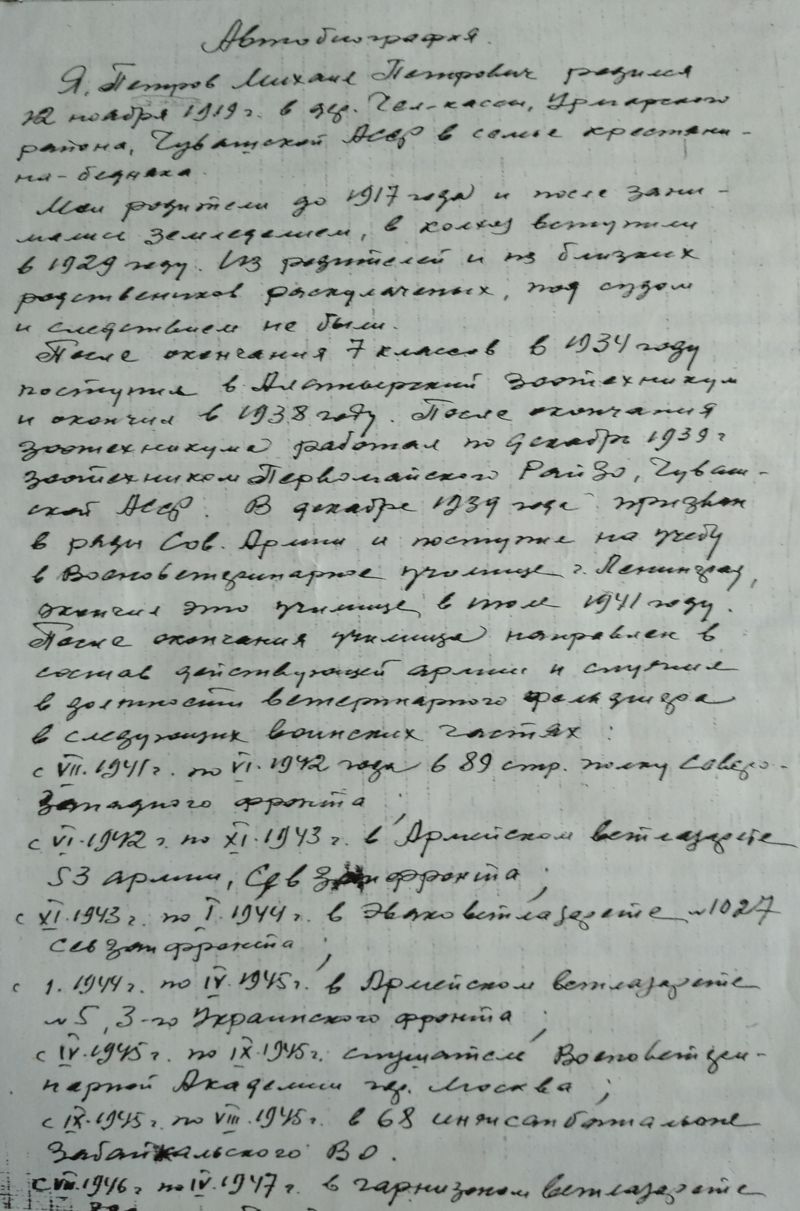 Автобиография.
Я, Петров Михаил Петрович родился
22 ноября 1919 г. в дер. Чел-касы, Урмарского
района, Чувашской АССР в семье крестьяни-
на-бедняка.
Мои родители до 1917 года и после зани-
мались земледелием, в колхоз вступили
в 1929 году. Из родителей и из близких
родственников раскулаченых, под судом
и следствием не были.
После окончания 7 классов в 1934 году
поступил в Алатырский зоотехникум
и окончил в 1938 году. После окончания
зоотехникума работал по декабрь 1939 г
зоотехником Первомайского РайЗо, Чуваш-
ской АССР. В декабре 1939 года призван
в ряды Сов. Армии и поступил на учебу
в Военоветеринарное училище г. Ленинград,
окончил это училище в июле 1941 году.
После окончания училища направлен в
состав действующей армии и служил
в должности ветеринарного фельдшера
в следующих воинских частях:
с VII.1941 г. по VI.1942 года в 89 стр. полку Северо-
Западного фронта;
с VI.1942 г. по XI.1943 г. в Армейском ветлазарете
53 армии, Сев Зап фронта;
с XI.1943 г. по I.1944 г. в Эваковетлазарете №1027
Сев зап фронта;
с 1.1944 г. по IV.1945 г. в Армейском ветлазарете
№5, 3-го Украинского фронта;
с IV.1945 г. по IX.1945 г. слушатель Военоветери-
нарной Академии гор. Москва;
с IX.1945 г. по VIII.1945 г. в 68 инжсапбатальоне
Забайкальского ВО.
с VIII.1946 г по IV.1947 г. в гарнизоном ветлазарете